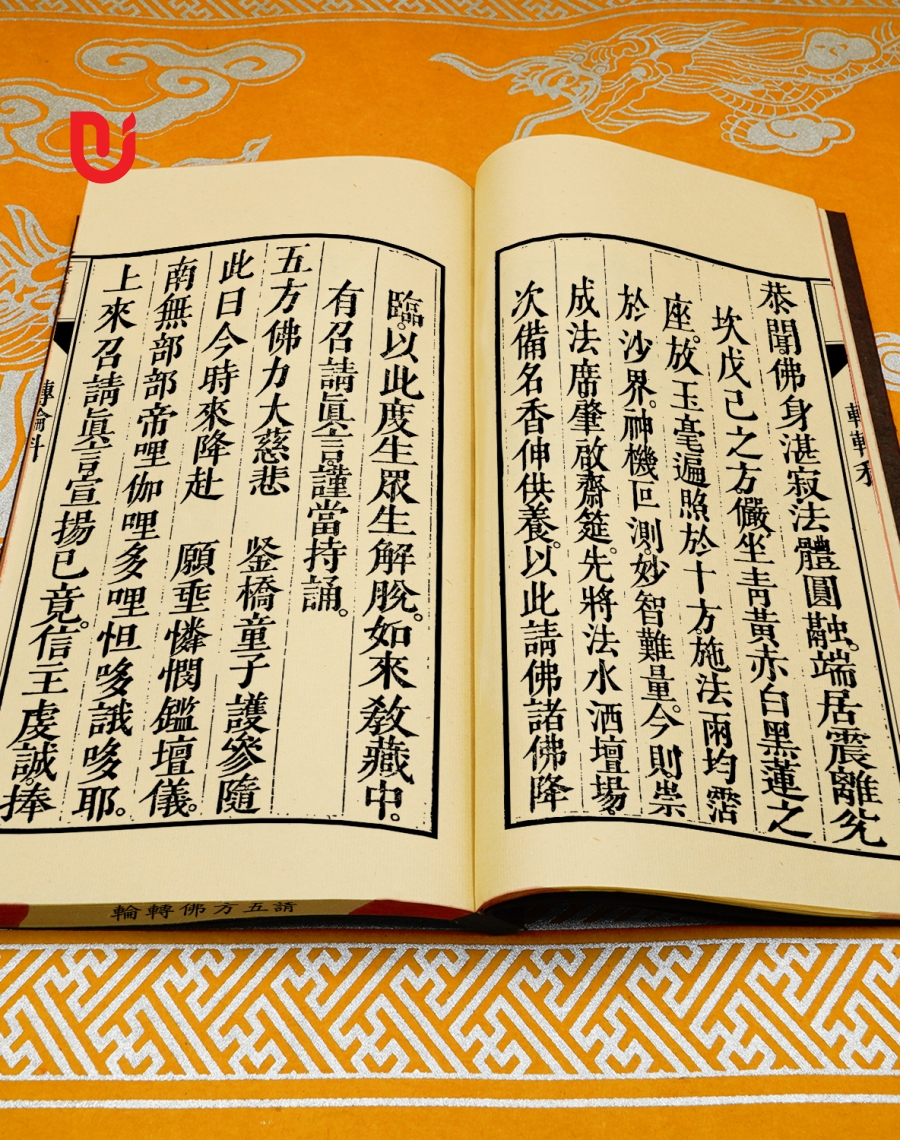 恭聞。佛身湛寂。法體圓融。端居震離兊
坎戊己之方。儼坐靑黃赤白黑蓮之
座。放玉毫遍照於十方。施法雨均霑
於沙界。神機叵測。妙智難量。今則崇
成法席。肇啟齋筵。先將法水洒壇場。
次備名香伸供養。以此請佛諸佛降
臨。以此度生眾生解脫。如來敎藏中。
有召請眞言。謹當持誦。
五方佛力大慈悲 鉴橋童子護參隨
此日今時來降赴 願垂憐憫鑑壇儀。
南無部部帝哩伽哩多哩怛哆誐哆耶。
上來召請眞言。宣揚已竟。信主虔誠。捧
請五方佛轉輪